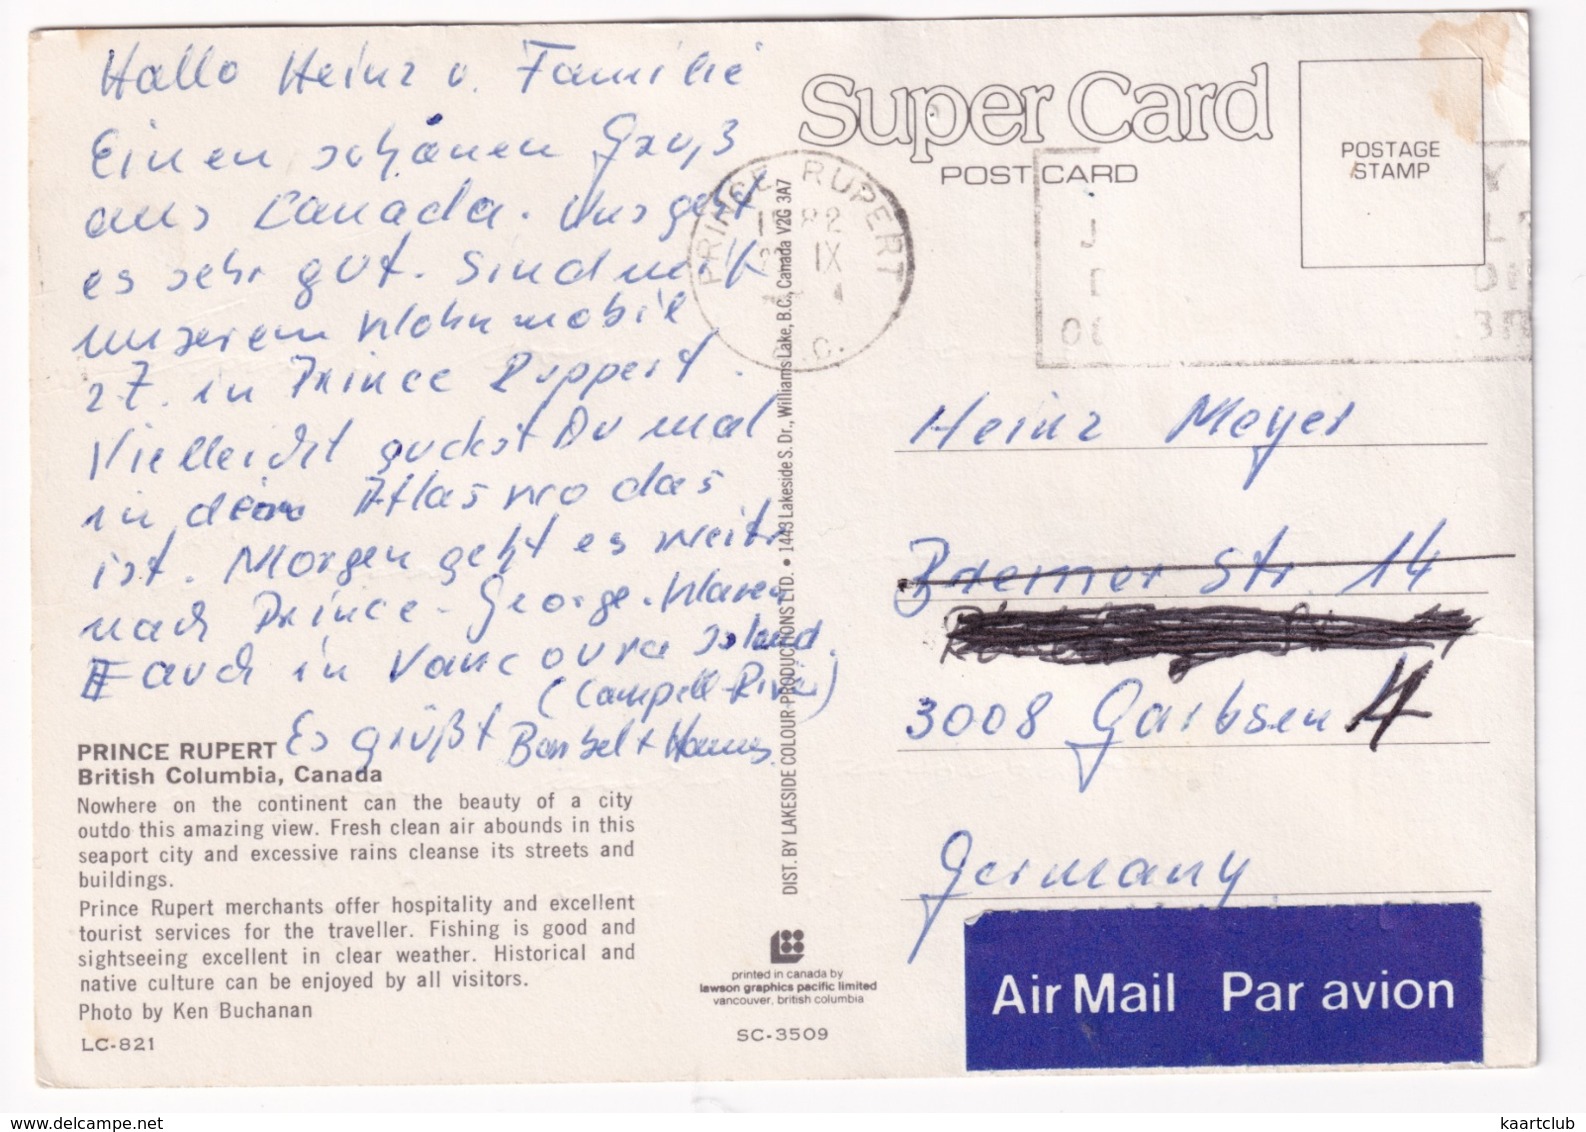 Hallo Heinz u. Familie
Einen schönen Gruß
aus Canada. Uns geht
es sehr gut. Sind mit
unserem Wohnmobil
27. in Prince Ruppert.
Vielleicht guckst Du mal
in dein Atlas wo das
ist. Morgen geht es weiter
nach Prince-George. Waren
auch in Vancouver Island.
(Campell-River)
Es grüßt Bärbel + Hannes
PRINCE RUPERT
British Columbia, Canada
Nowhere on the continent can the beauty of a city
outdo this amazing view. Fresh clean air abounds in this
seaport city and excessive rains cleanse its streets and
buildings.
Prince Rupert merchants offer hospitality and excellent
tourist services for the traveller. Fishing is good and
sightseeing excellent in clear weather. Historical and
native culture can be enjoyed by all visitors.
Photo by Ken Buchanan
LC-821
DIST. BY LAKESIDE COLOUR PRODUCTIONS LTD. • 1443 Lakeside S. Dr., Williams Lake, B.C., Canada V2G 3A7
printed in canada by
lawson graphics pacific limited
vancouver, british columbia
SC-3509
Super Card
POST CARD
POSTAGE
STAMP
PRINCE RUPERT
82
IX
Heinz Meyer
Bremer Str. 14
3008 Garbsen 4
Germany
Air Mail Par avion
www.delcampe.net
kaartclub